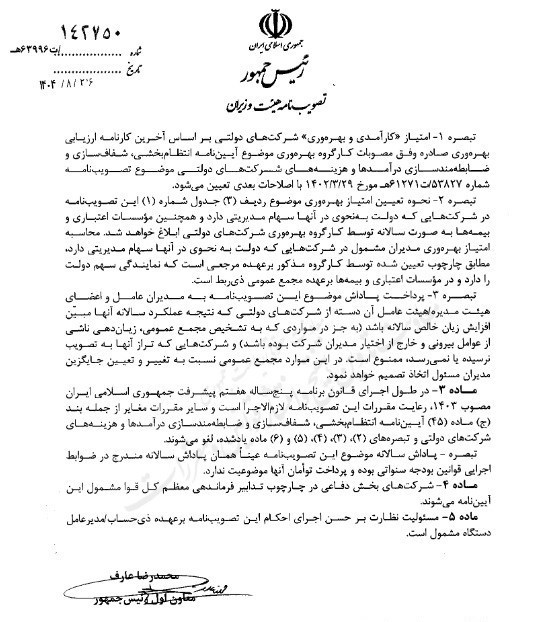 جمهوری اسلامی ایران
رئیس جمهور
تصویب‌نامه هیئت وزیران
۱۴۲۷۵۰
شماره .................../ت۶۳۹۹۶هـ
تاریخ ...................
۱۴۰۴/۸/۲۶
تبصره ۱- امتیاز «کارآمدی و بهره‌وری» شرکت‌های دولتی بر اساس آخرین کارنامه ارزیابی
بهره‌وری صادره وفق مصوبات کارگروه بهره‌وری موضوع آیین‌نامه انتظام‌بخشی، شفاف‌سازی و
ضابطه‌مندسازی درآمدها و هزینه‌های شرکت‌های دولتی موضوع تصویب‌نامه
شماره ۵۳۸۲۷/ت۶۱۲۷۱هـ مورخ ۱۴۰۲/۳/۲۹ با اصلاحات بعدی تعیین می‌شود.
تبصره ۲- نحوه تعیین امتیاز بهره‌وری موضوع ردیف (۳) جدول شماره (۱) این تصویب‌نامه
در شرکت‌هایی که دولت به‌نحوی در آنها سهام مدیریتی دارد و همچنین مؤسسات اعتباری و
بیمه‌ها به صورت سالانه توسط کارگروه بهره‌وری شرکت‌های دولتی ابلاغ خواهد شد. محاسبه
امتیاز بهره‌وری مدیران مشمول در شرکت‌هایی که دولت به نحوی در آنها سهام مدیریتی دارد،
مطابق چارچوب تعیین شده توسط کارگروه مذکور برعهده مرجعی است که نمایندگی سهم دولت
را دارد و در مؤسسات اعتباری و بیمه‌ها برعهده مجمع عمومی ذی‌ربط است.
تبصره ۳- پرداخت پاداش موضوع این تصویب‌نامه به مدیران عامل و اعضای
هیئت مدیره/هیئت عامل آن دسته از شرکت‌های دولتی که نتیجه عملکرد سالانه آنها مبیّن
افزایش زیان خالص سالانه باشد (به جز در مواردی که به تشخیص مجمع عمومی، زیان‌دهی ناشی
از عوامل بیرونی و خارج از اختیار مدیران شرکت بوده باشد) و شرکت‌هایی که تراز آنها به تصویب
نرسیده یا نمی‌رسد، ممنوع است. در این موارد مجمع عمومی نسبت به تغییر و تعیین جایگزین
مدیران مسئول اتخاذ تصمیم خواهد نمود.
ماده ۳- در طول اجرای قانون برنامه پنج‌ساله هفتم پیشرفت جمهوری اسلامی ایران
مصوب ۱۴۰۳، رعایت مقررات این تصویب‌نامه لازم‌الاجرا است و سایر مقررات مغایر از جمله بند
(ج) ماده (۴۵) آیین‌نامه انتظام‌بخشی، شفاف‌سازی و ضابطه‌مندسازی درآمدها و هزینه‌های
شرکت‌های دولتی و تبصره‌های (۲)، (۳)، (۴)، (۵) و (۶) ماده یادشده، لغو می‌شوند.
تبصره - پاداش سالانه موضوع این تصویب‌نامه عیناً همان پاداش سالانه مندرج در ضوابط
اجرایی قوانین بودجه سنواتی بوده و پرداخت توأمان آنها موضوعیت ندارد.
ماده ۴- شرکت‌های بخش دفاعی در چارچوب تدابیر فرماندهی معظم کل قوا مشمول این
آیین‌نامه می‌شوند.
ماده ۵- مسئولیت نظارت بر حسن اجرای احکام این تصویب‌نامه برعهده ذی‌حساب/مدیرعامل
دستگاه مشمول است.
محمدرضا عارف
معاون اول رئیس جمهور